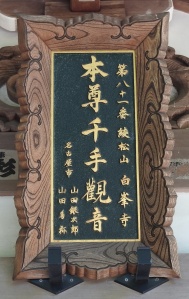 第八十一番 綾松山 白峯寺
本尊千手觀音
名古屋市
山田銀次郎
山田善弥